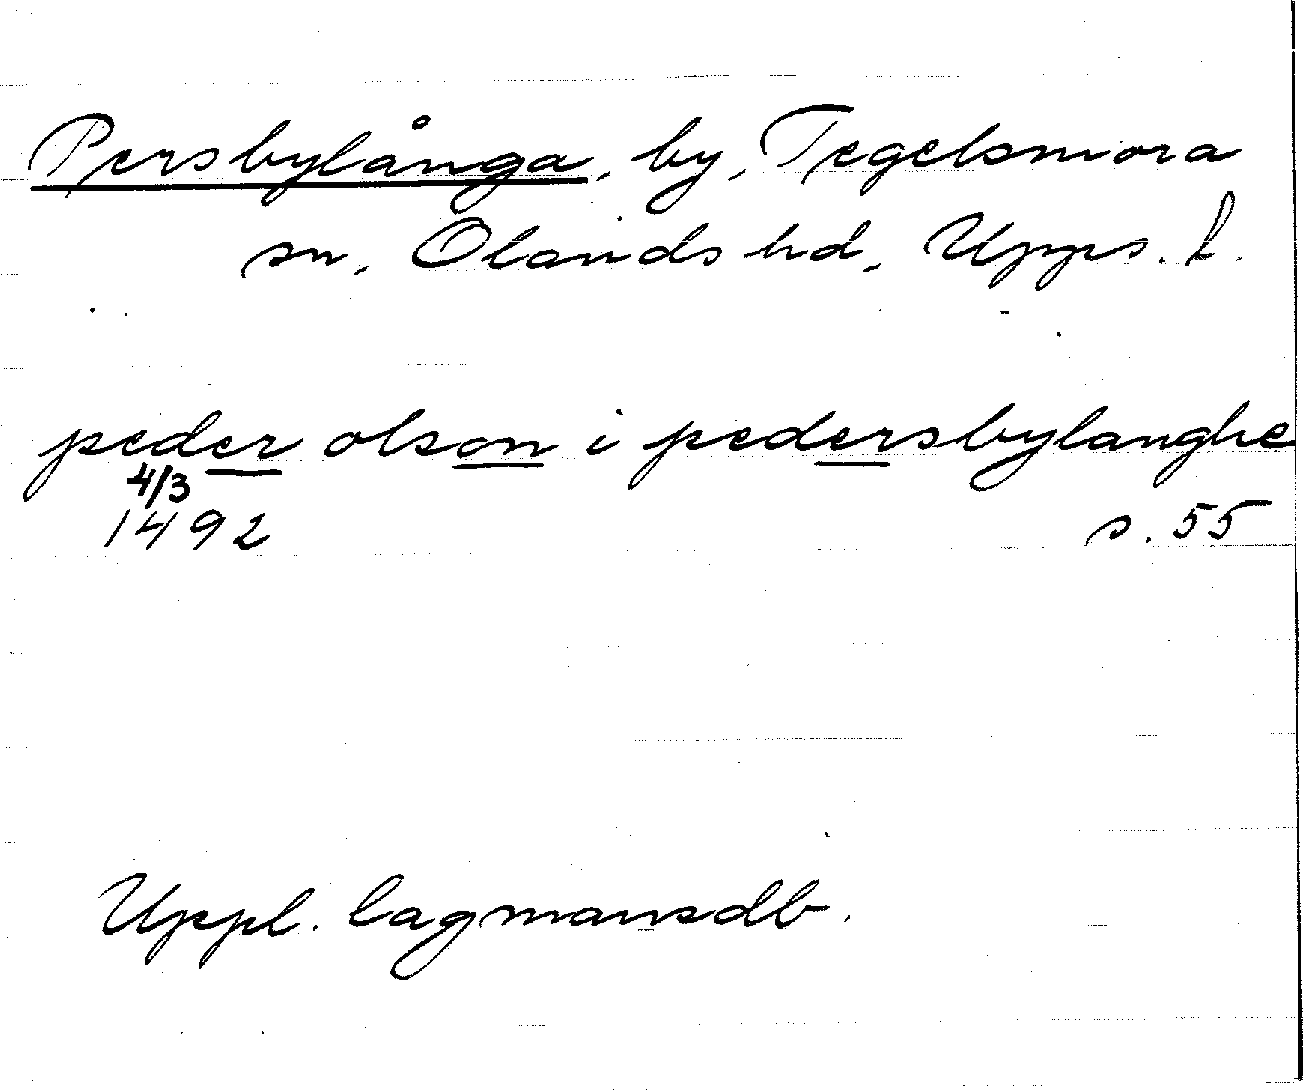 Persbylånga, by, Tegelsmora
sn, Olands hd, Upps. l.
peder olson i pedersbylanghe
4/3
1492 s. 55
Uppl. lagmansdb.